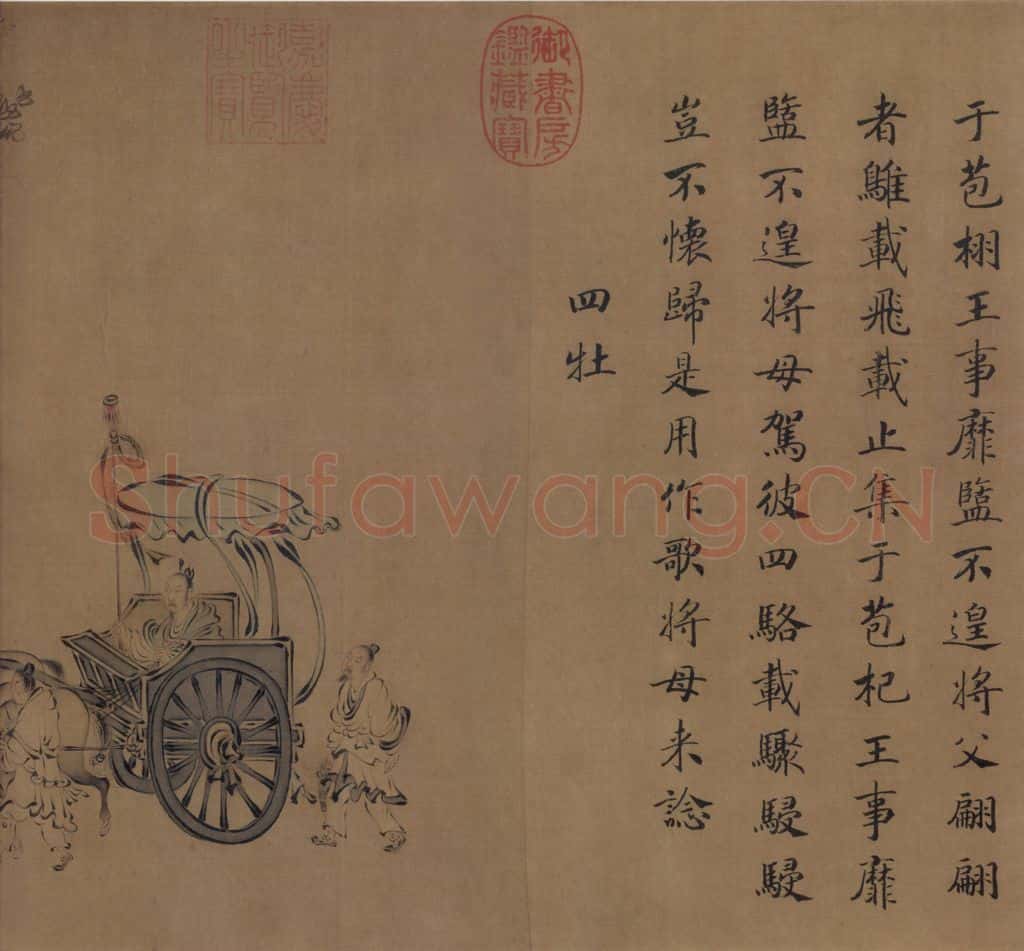 于苞栩王事靡盬不遑将父翩翩
者鵻載飛載止集于苞杞王事靡
盬不遑将母駕彼四駱載驟駸駸
豈不懷歸是用作歌将母来諗
四牡
御書房鑑藏寶
嘉慶御覽之寶
Shufawang.CN